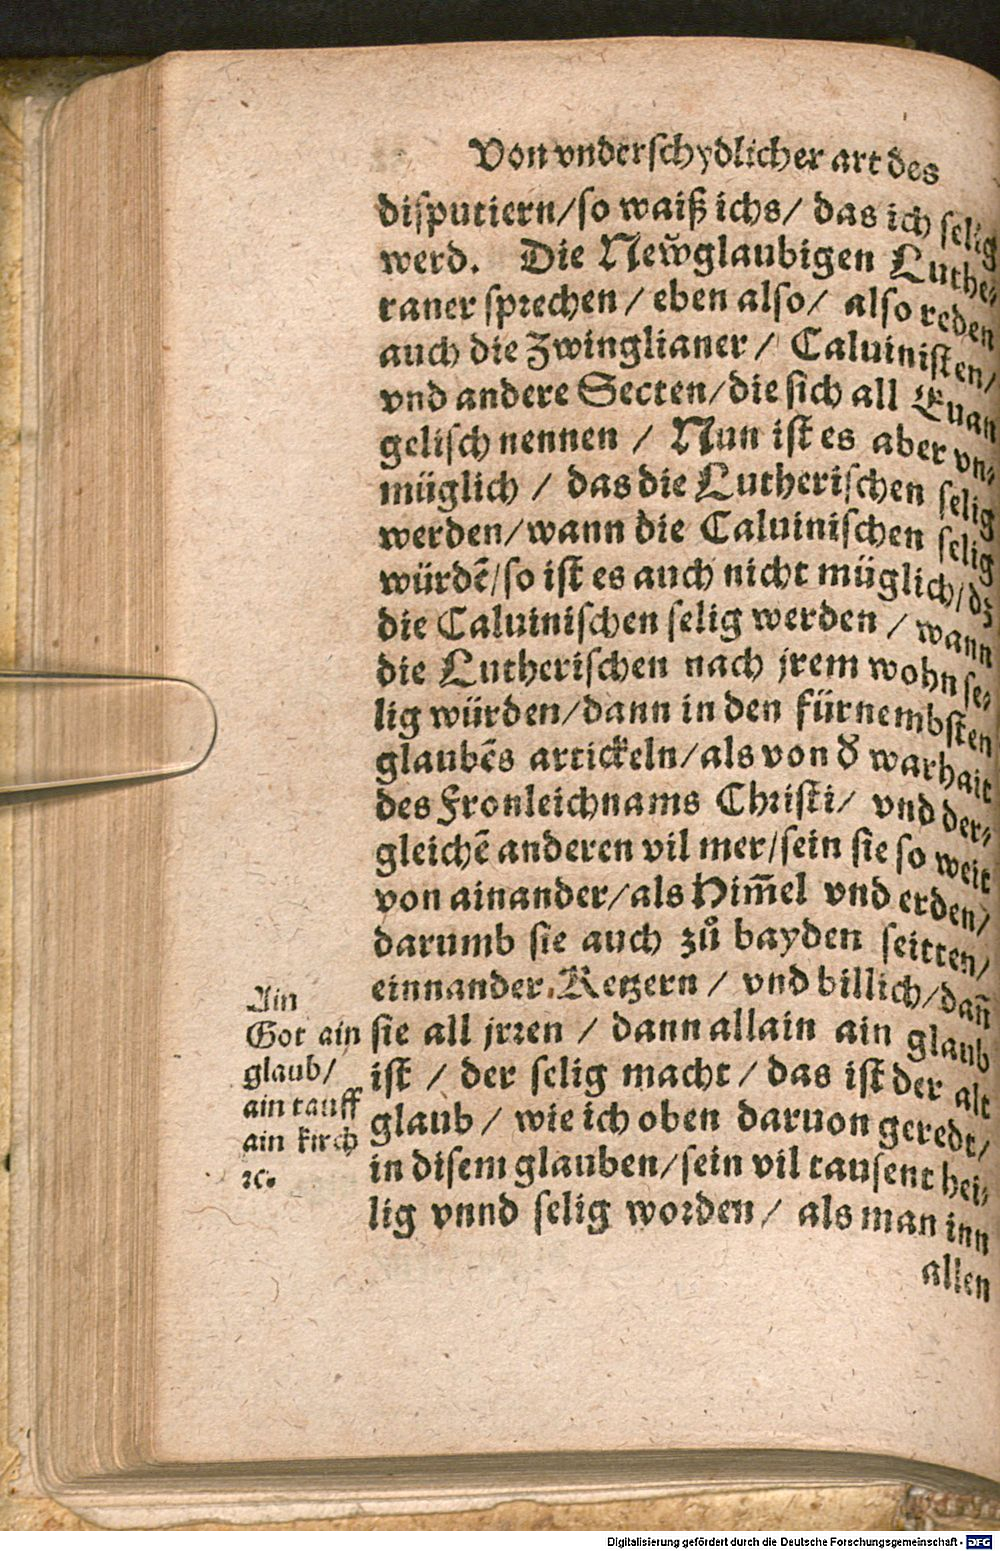 Von vnderschydlicher art des
disputiern/so waiß ichs/ das ich selig
werd. Die Newglaubigen Luthe-
raner sprechen / eben also/ also reden
auch die Zwinglianer / Caluinisten/
vnd andere Secten/die sich all Euan
gelisch nennen / Nun ist es aber vn-
müglich / das die Lutherischen selig
werden/wann die Caluinischen selig
würdē/so ist es auch nicht müglich/dz
die Caluinischen selig werden / wann
die Lutherischen nach jrem wohn se-
lig würden/dann in den fürnembsten
glaubēs artickeln/als von d̕ warhait
des Fronleichnams Christi/ vnd der-
gleichē anderen vil mer/sein sie so weit
von ainander/als Him̄el vnd erden/
darumb sie auch zů bayden seitten/
einnander Ketzern / vnd billich/dan̄
sie all jrren / dann allain ain glaub
ist / der selig macht / das ist der alt
glaub / wie ich oben daruon geredt/
in disem glauben/sein vil tausent hei-
lig vnnd selig worden / als man inn
allen
Ain
Got ain
glaub/
ain tauff
ain kirch
ꝛc.
Digitalisierung gefördert durch die Deutsche Forschungsgemeinschaft - DFG